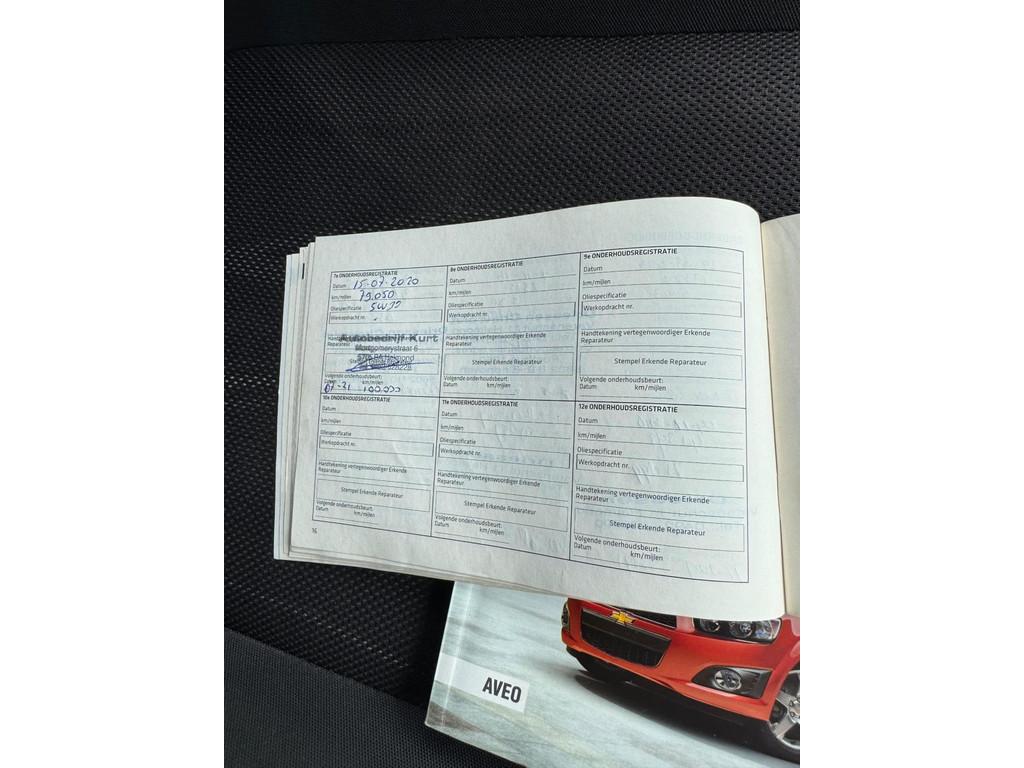 7e ONDERHOUDSREGISTRATIE
Datum 15-07-2020
km/mijlen 79.050
Oliespecificatie 5W30
Werkopdracht nr.
Handtekening vertegenwoordiger Erkende
Reparateur
Autobedrijf Kurt
Montgomerystraat 6
Helmond
Volgende onderhoudsbeurt:
Datum km/mijlen
07-21 100.000
8e ONDERHOUDSREGISTRATIE
Datum
km/mijlen
Oliespecificatie
Werkopdracht nr.
Handtekening vertegenwoordiger Erkende
Reparateur
Stempel Erkende Reparateur
Volgende onderhoudsbeurt:
Datum km/mijlen
9e ONDERHOUDSREGISTRATIE
Datum
km/mijlen
Oliespecificatie
Werkopdracht nr.
Handtekening vertegenwoordiger Erkende
Reparateur
Stempel Erkende Reparateur
Volgende onderhoudsbeurt:
Datum km/mijlen
10e ONDERHOUDSREGISTRATIE
Datum
km/mijlen
Oliespecificatie
Werkopdracht nr.
Handtekening vertegenwoordiger Erkende
Reparateur
Stempel Erkende Reparateur
Volgende onderhoudsbeurt:
Datum km/mijlen
11e ONDERHOUDSREGISTRATIE
Datum
km/mijlen
Oliespecificatie
Werkopdracht nr.
Handtekening vertegenwoordiger Erkende
Reparateur
Stempel Erkende Reparateur
Volgende onderhoudsbeurt:
Datum km/mijlen
12e ONDERHOUDSREGISTRATIE
Datum
km/mijlen
Oliespecificatie
Werkopdracht nr.
Handtekening vertegenwoordiger Erkende
Reparateur
Stempel Erkende Reparateur
Volgende onderhoudsbeurt:
Datum km/mijlen
14
AVEO